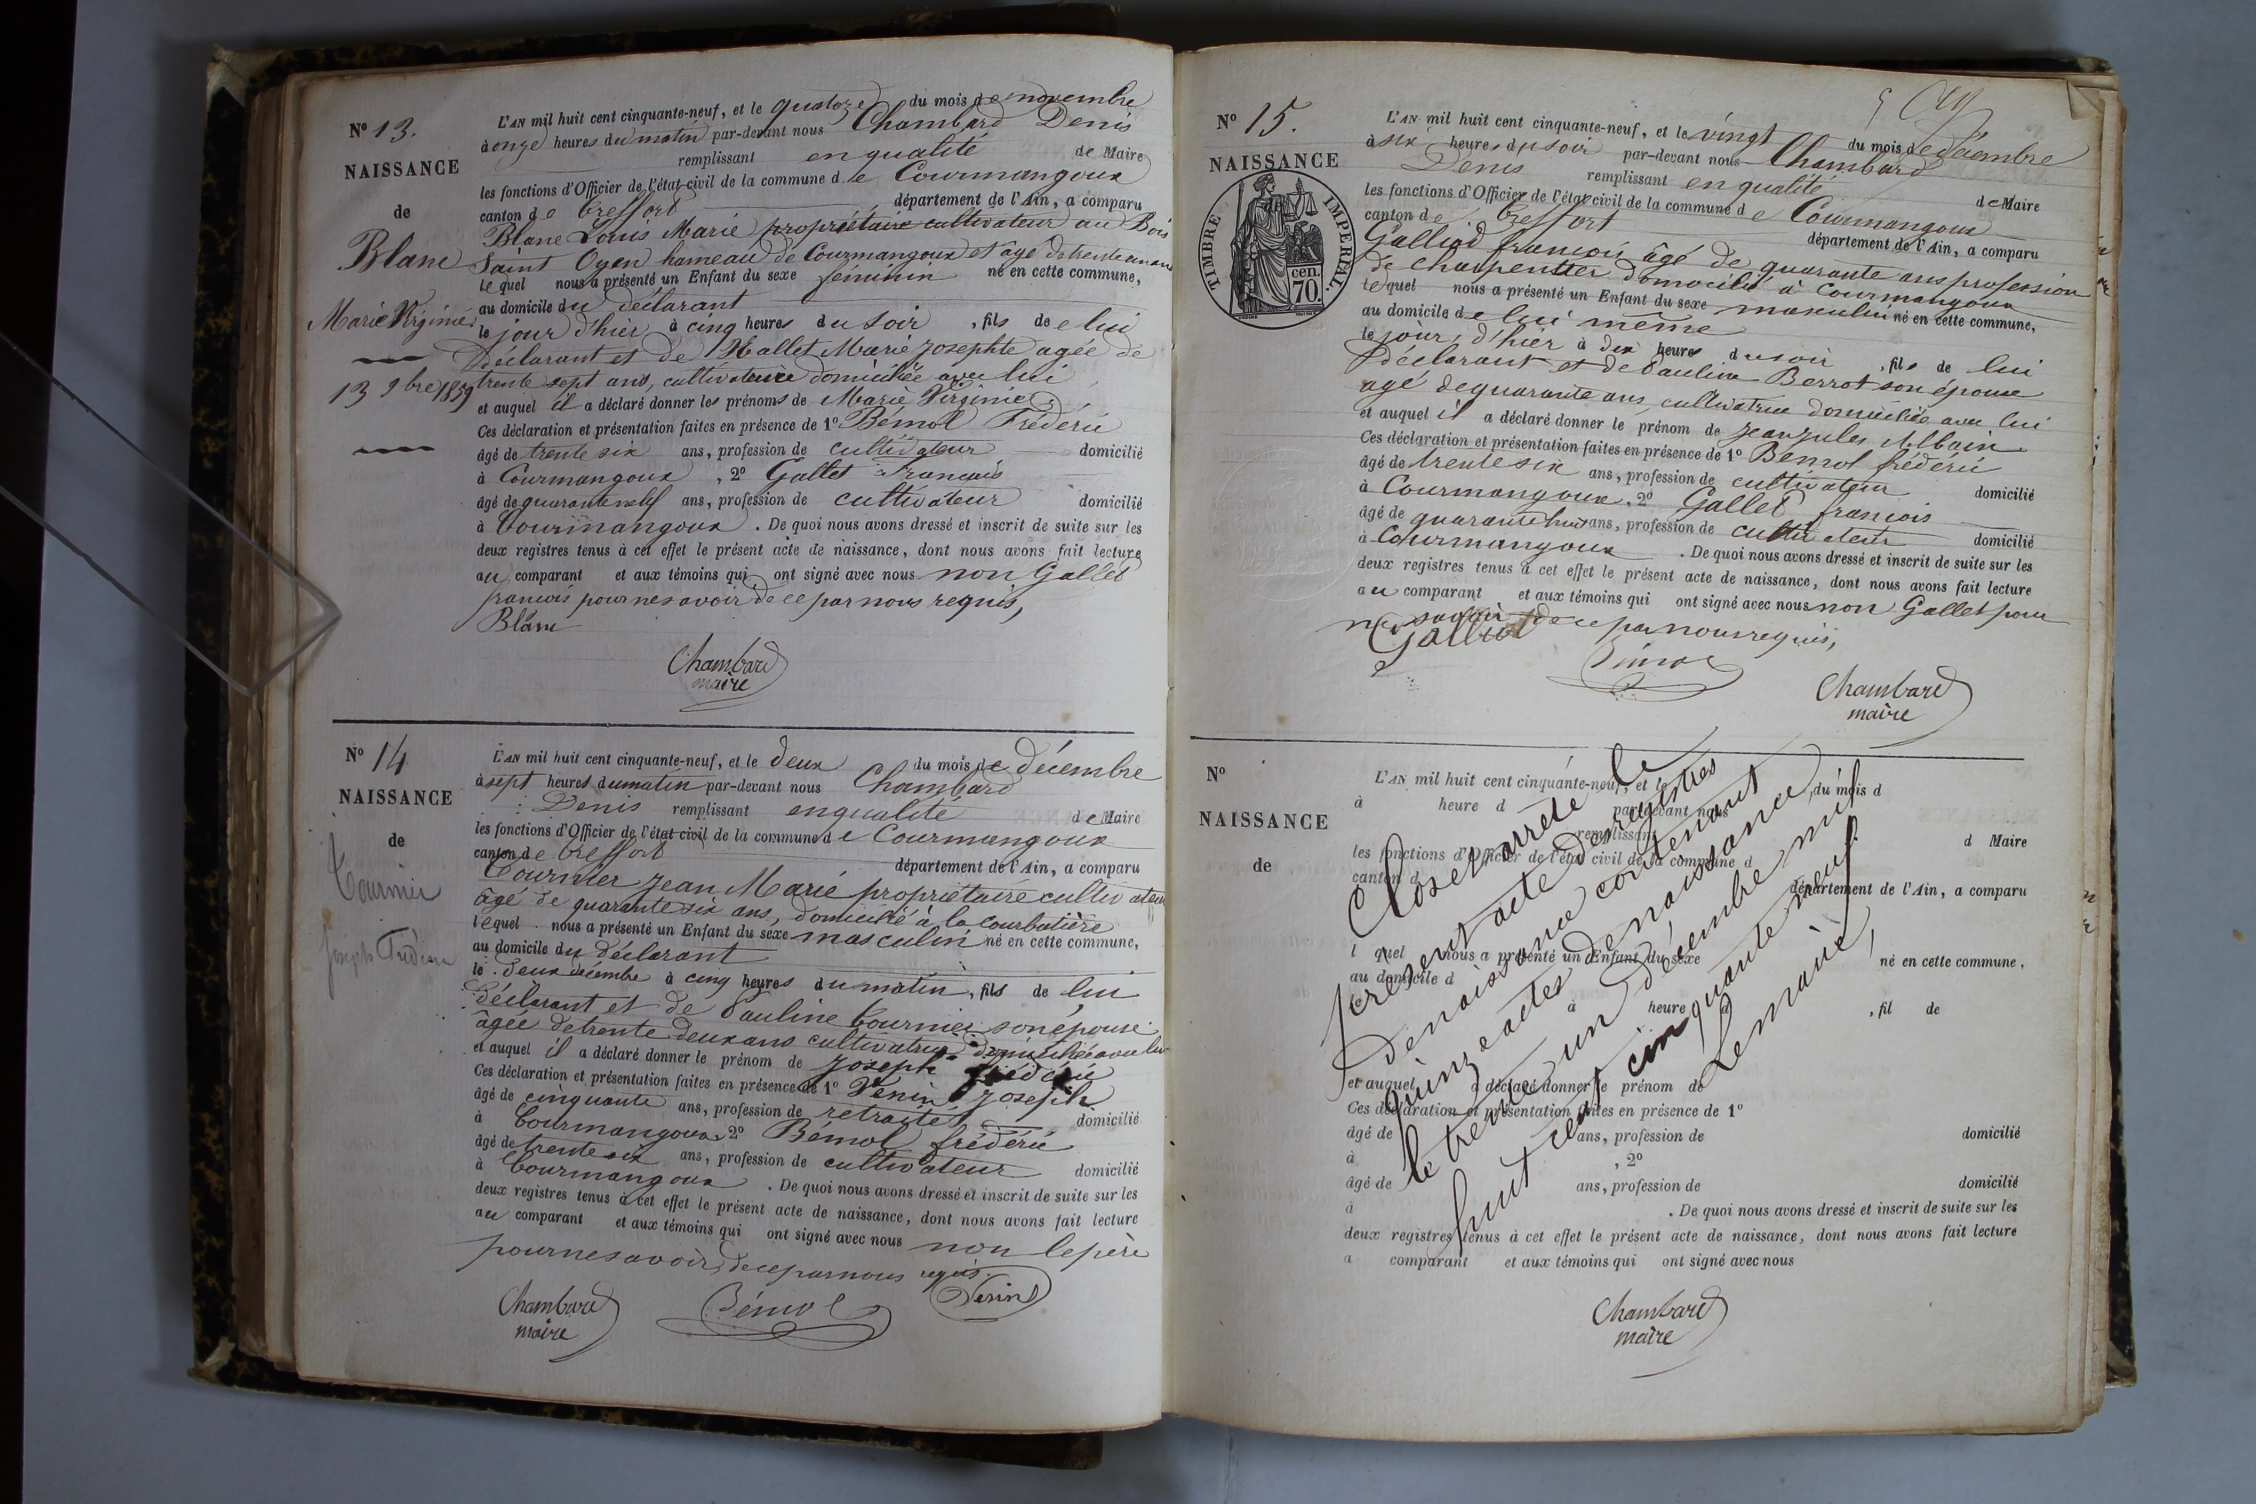 N° 13.
NAISSANCE
de
Blanc
Marie Virginie
13 9bre 1859
L'AN mil huit cent cinquante-neuf, et le quatorze du mois de novembre
à onze heures du matin par-devant nous Chambard Denis
remplissant en qualité de Maire
les fonctions d'Officier de l'état-civil de la commune de Courmangoux
canton de Treffort département de l'Ain, a comparu
Blanc Louis Marie propriétaire cultivateur au Bois
Saint Oyen hameau de Courmangoux et âgé de trente un ans
lequel nous a présenté un Enfant du sexe féminin né en cette commune,
au domicile du déclarant
le jour d'hier à cinq heures du soir, fils de lui
Déclarant et de Hallet Marie Josephte agée de
trente sept ans, cultivatrice domiciliée avec lui
et auquel il a déclaré donner les prénoms de Marie Virginie
Ces déclaration et présentation faites en présence de 1° Bémol Frédéric
âgé de trente six ans, profession de cultivateur domicilié
à Courmangoux, 2° Gallet francois
âgé de quarante neuf ans, profession de cultivateur domicilié
à Courmangoux. De quoi nous avons dressé et inscrit de suite sur les
deux registres tenus à cet effet le présent acte de naissance, dont nous avons fait lecture
au comparant et aux témoins qui ont signé avec nous non Gallet
francois pour ne savoir de ce par nous requis,
Blanc
Chambard
maire
N° 14
NAISSANCE
de
Tournier
Joseph Frédéric
L'AN mil huit cent cinquante-neuf, et le deux du mois de décembre
à sept heures du matin par-devant nous Chambard
Denis remplissant en qualité de Maire
les fonctions d'Officier de l'état-civil de la commune de Courmangoux
canton de Treffort département de l'Ain, a comparu
Tournier Jean Marie propriétaire cultivateur
âgé de quarante six ans, domicilié à la Courbatière
lequel nous a présenté un Enfant du sexe masculin né en cette commune,
au domicile du Déclarant
le deux décembre à cinq heures du matin, fils de lui
déclarant et de Pauline Tournier son épouse
âgée de trente deux ans cultivatrice domiciliée avec lui
et auquel il a déclaré donner le prénom de Joseph frédéric
Ces déclaration et présentation faites en présence de 1° Venin Joseph
âgé de cinquante ans, profession de retraité domicilié
à Courmangoux 2° Bémol frédéric
âgé de trente six ans, profession de cultivateur domicilié
à Courmangoux. De quoi nous avons dressé et inscrit de suite sur les
deux registres tenus à cet effet le présent acte de naissance, dont nous avons fait lecture
au comparant et aux témoins qui ont signé avec nous non le père
pour ne savoir de ce par nous requis
Chambard
maire
Bémol
Venin
N° 15.
NAISSANCE
TIMBRE IMPERIAL.
cen.
70.
L'AN mil huit cent cinquante-neuf, et le vingt du mois de décembre
à six heures du soir par-devant nous Chambard
Denis remplissant en qualité de Maire
les fonctions d'Officier de l'état-civil de la commune de Courmangoux
canton de Treffort département de l'Ain, a comparu
Galliod francois âgé de quarante ans profession
de charpentier domicilié à Courmangoux
lequel nous a présenté un Enfant du sexe masculin né en cette commune,
au domicile de lui même
le jour d'hier à dix heures du soir, fils de lui
déclarant et de Pauline Berrot son épouse
agé de quarante ans cultivatrice domiciliée avec lui
et auquel il a déclaré donner le prénom de jean jules Albain
Ces déclaration et présentation faites en présence de 1° Bemol frédéric
âgé de trente six ans, profession de cultivateur domicilié
à Courmangoux, 2° Gallet francois
âgé de quarante huit ans, profession de cultivateur domicilié
à Courmangoux. De quoi nous avons dressé et inscrit de suite sur les
deux registres tenus à cet effet le présent acte de naissance, dont nous avons fait lecture
au comparant et aux témoins qui ont signé avec nous non Gallet pour
ne savoir de ce par nous requis,
Galliod
Bémol
Chambard
maire
N°
NAISSANCE
de
L'AN mil huit cent cinquante-neuf, et le du mois d
à heure d par-devant nous
remplissant
d Maire
les fonctions d'Officier de l'état civil de la commune d
canton d département de l'Ain, a comparu
l quel nous a présenté un Enfant du sexe né en cette commune,
au domicile d
le à heure d, fil de
et auquel a déclaré donner le prénom de
Ces déclaration et présentation faites en présence de 1°
âgé de ans, profession de domicilié
à, 2°
âgé de ans, profession de domicilié
à. De quoi nous avons dressé et inscrit de suite sur les
deux registres tenus à cet effet le présent acte de naissance, dont nous avons fait lecture
a comparant et aux témoins qui ont signé avec nous
Clos et arrêté le
présent acte des registres
de naissance contenant
quinze actes de naissance,
le trente un décembre mil
huit cent cinquante neuf.
Le maire,
Chambard
maire